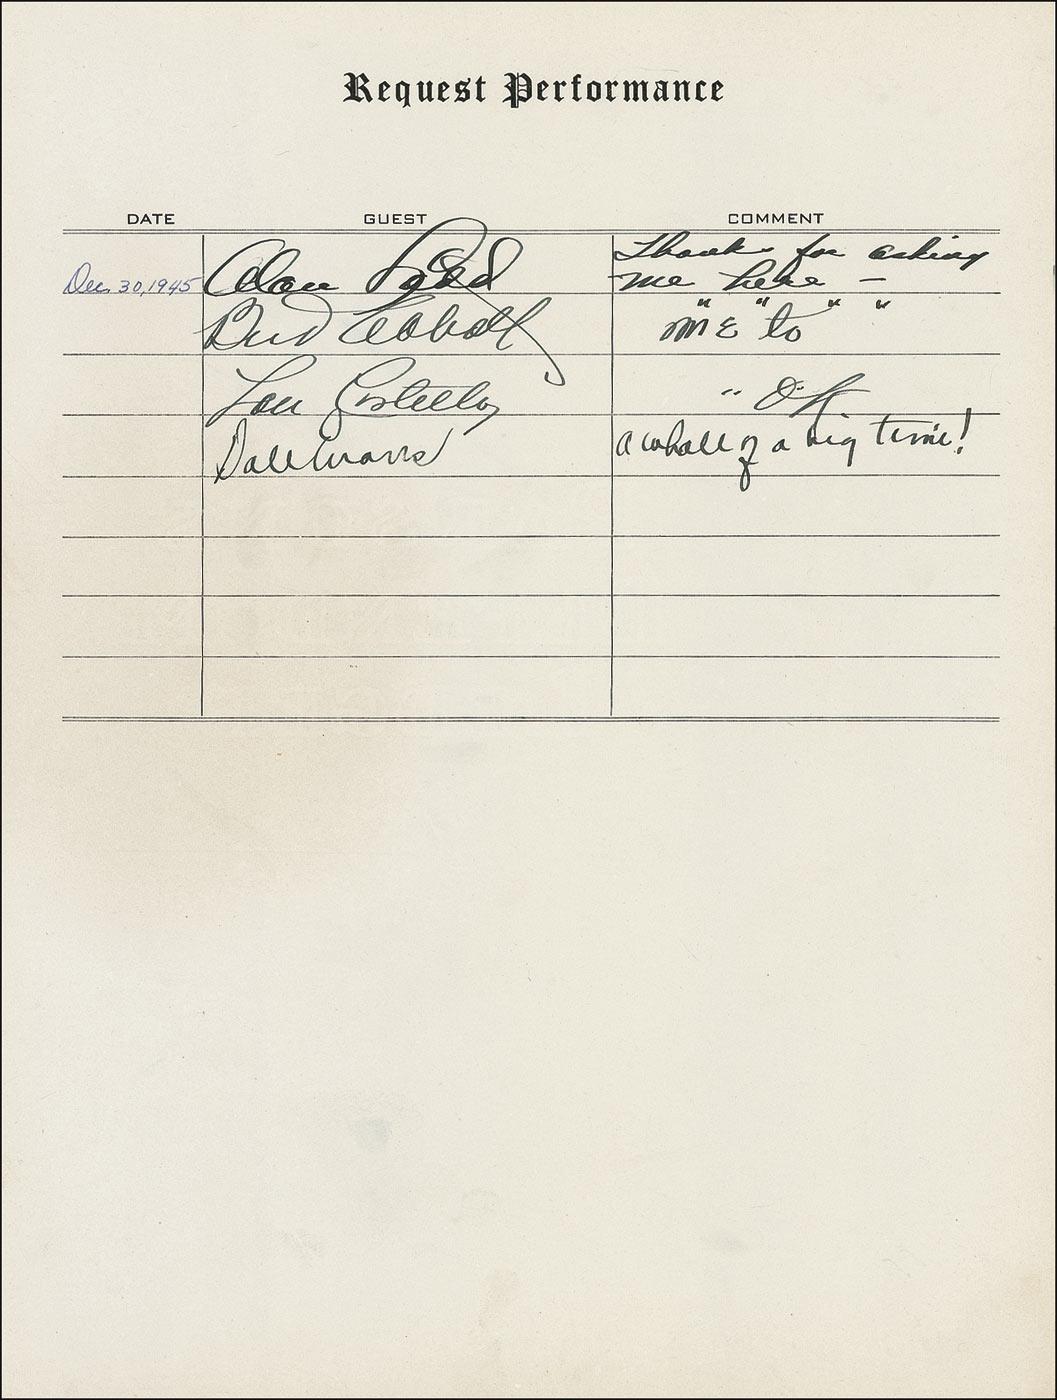 Request Performance
DATE GUEST COMMENT
Thanks for asking
Dec. 30, 1945 Alan Ladd me here —
" " " "
Bud Abbott ME to
Lou Costello " O.K.
Dale Evans a whale of a big time!